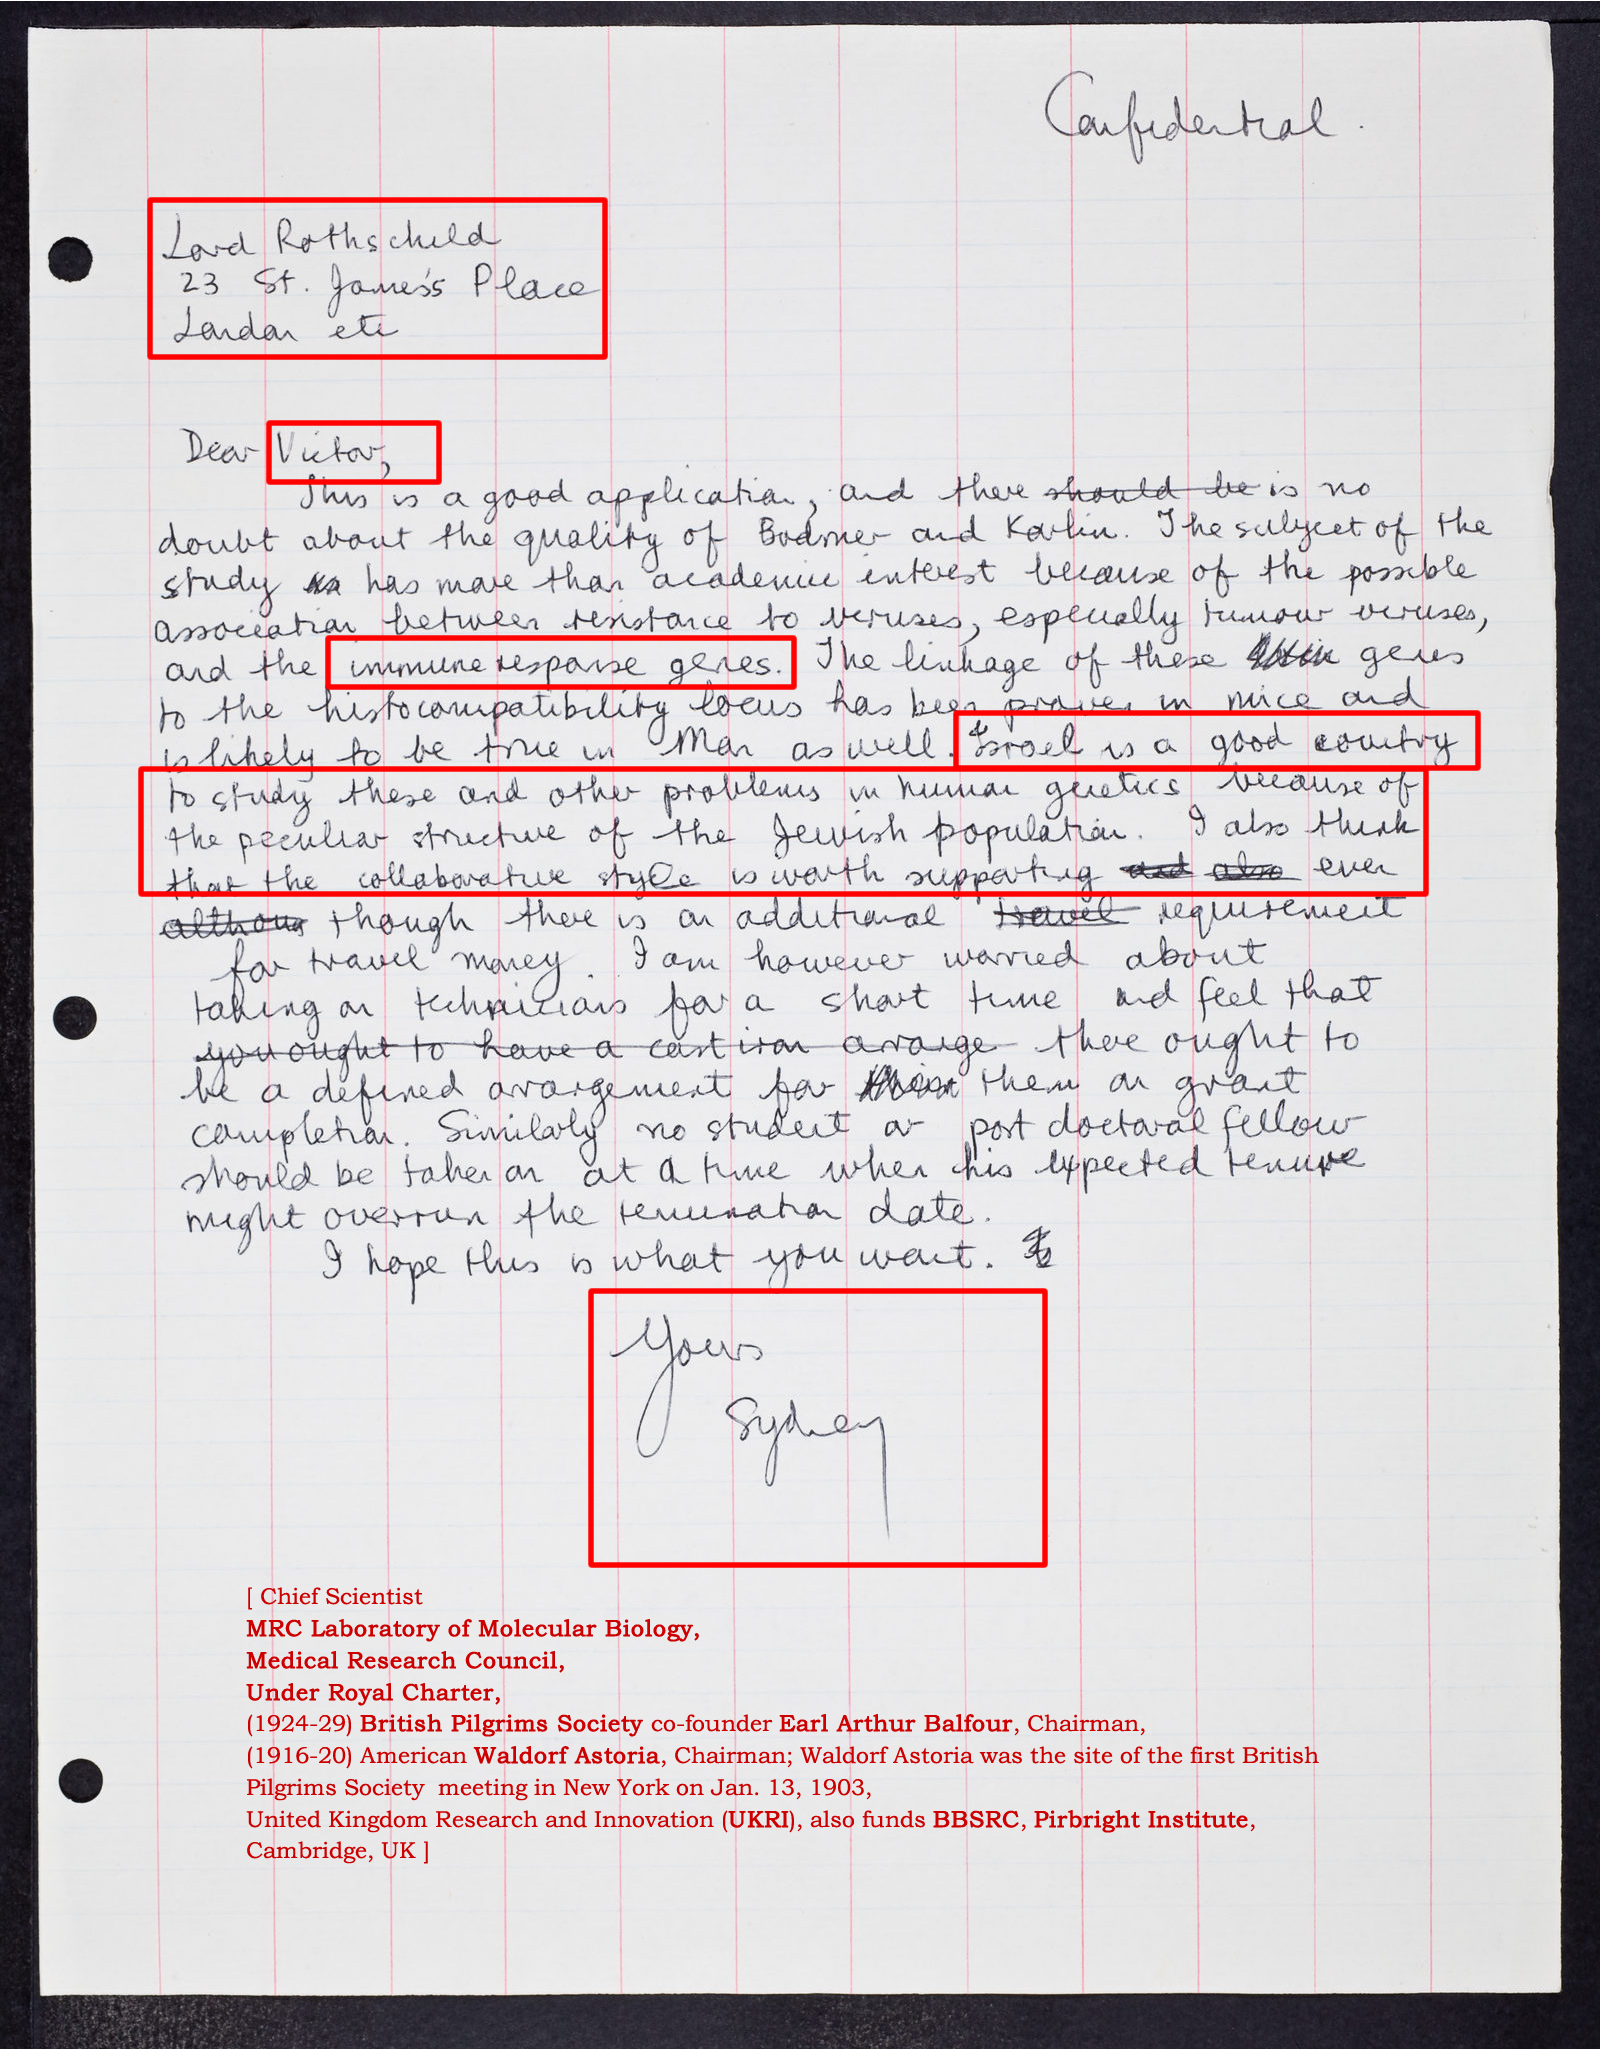 Confidential.
Lord Rothschild
23 St. James's Place
London etc
Dear Victor,
This is a good application, and there should be is no
doubt about the quality of Bodmer and Karlin. The subject of the
study has more than academic interest because of the possible
association between resistance to viruses, especially tumour viruses,
and the immune response genes. The linkage of these genes
to the histocompatibility locus has been proven in mice and
is likely to be true in Man as well. Israel is a good country
to study these and other problems in human genetics because of
the peculiar structure of the Jewish population. I also think
that the collaborative style is worth supporting and also even
although though there is an additional travel requirement
for travel money. I am however worried about
taking on technicians for a short time and feel that
you ought to have a cast iron arrange there ought to
be a defined arrangement for them on grant
completion. Similarly no student or post doctoral fellow
should be taken on at a time when his expected tenure
might overrun the termination date.
I hope this is what you want.
Yours
Sydney
[ Chief Scientist
MRC Laboratory of Molecular Biology,
Medical Research Council,
Under Royal Charter,
(1924-29) British Pilgrims Society co-founder Earl Arthur Balfour, Chairman,
(1916-20) American Waldorf Astoria, Chairman; Waldorf Astoria was the site of the first British
Pilgrims Society meeting in New York on Jan. 13, 1903,
United Kingdom Research and Innovation (UKRI), also funds BBSRC, Pirbright Institute,
Cambridge, UK ]